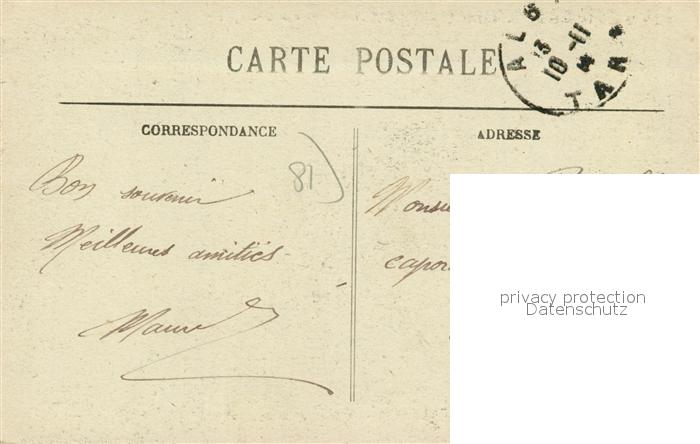 CARTE POSTALE
ALB
13
10-11
TARN
CORRESPONDANCE
ADRESSE
81
Bon souvenir
Meilleures amitiés
privacy protection
Datenschutz